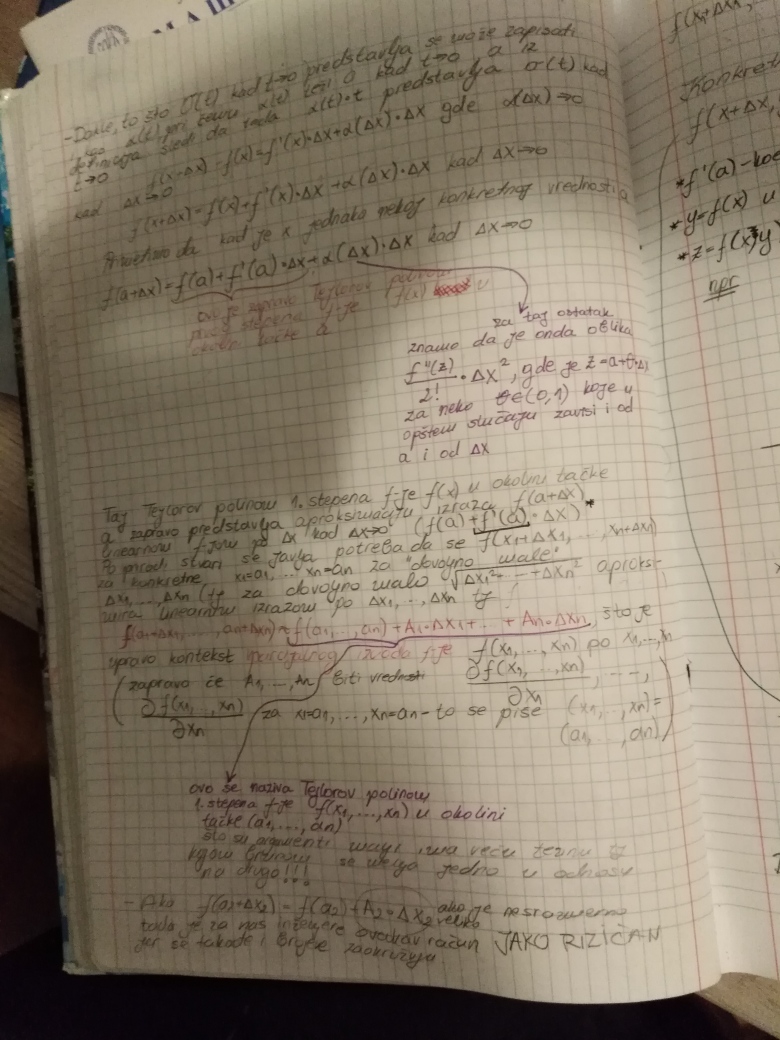 MA
-Dakle, to što σ(t) kad t→0 predstavlja se može zapisati
kao α(t)·t pri čemu α(t) teži 0 kad t→0 a iz
definicije sledi da tada α(t)·t predstavlja σ(t) kad
t→0
f(x+Δx) - f(x) = f'(x)·Δx+α(Δx)·Δx gde α(Δx)→0
kad Δx→0
f(x+Δx) = f(x)+f'(x)·Δx+α(Δx)·Δx kad Δx→0
da kad je x jednako nekoj konkretnoj vrednosti a
f(a+Δx)=f(a)+f'(a)·Δx+α(Δx)·Δx kad Δx→0
ovo je zapravo Tejlorov polinom
prvog stepena f-je f(x) u
okolini tačke a
za taj ostatak
znamo da je onda oblika
f''(z)/2! · Δx², gde je z=a+θ·Δx
za neko θ∈(0,1) koje u
opštem slučaju zavisi i od
a i od Δx
Taj Tejlorov polinom 1. stepena f-je f(x) u okolini tačke
a zapravo predstavlja aproksimaciju izraza f(a+Δx)
linearnom f-jom po Δx kad Δx→0 (f(a)+f'(a)·Δx)*
Po prirodi stvari se javlja potreba da se f(x1+Δx1,...,xn+Δxn)
za konkretne x1=a1,...xn=an za "dovoljno male"
Δx1,...,Δxn (tj za dovoljno malo √Δx1²+---+Δxn² aproksi-
mira linearnim izrazom po Δx1,...,Δxn tj
f(a1+Δx1,...,an+Δxn)≈f(a1,...,an)+A1·Δx1+...+An·Δxn, što je
upravo kontekst parcijalnog izvoda f-je f(x1,...,xn) po x1,...,xn
(zapravo će A1,...,An biti vrednosti ∂f(x1,...,xn)/∂x1, ---,
∂f(x1,...,xn)/∂xn za x1=a1,...,xn=an - to se piše (x1,...,xn)=
(a1,...,an))
ovo se naziva Tejlorov polinom
1. stepena f-je f(x1,...,xn) u okolini
tačke (a1,...,an)
što su argumenti manji, ima veću težinu
se menja jedno u odnosu
na drugo!!!
- Ako f(a2+Δx2)=f(a2)+A2·Δx2 ako je nesrazmerno
veliko
tada je za nas inženjere ovakav račun JAKO RIZIČAN
jer se takođe i brojevi zaokružuju
f(x1+Δx1,
Konkretn
f(x+Δx,
*f'(a)-koe
*y=f(x) u
*z=f(x,y)
npr